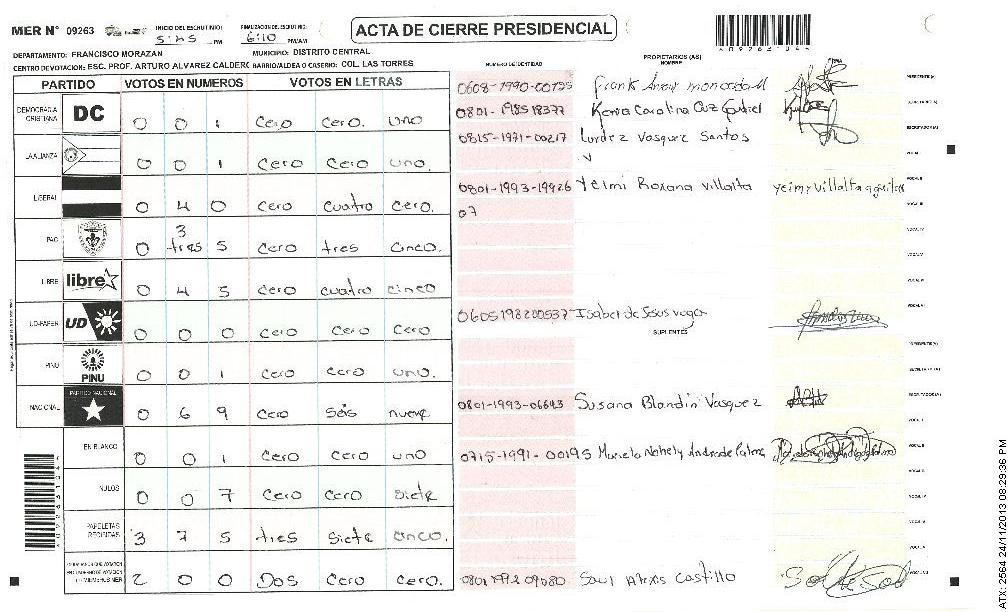 MER Nº 09263
INICIO DEL ESCRUTINIO: 5:45 PM
FINALIZACION DEL ESCRUTINIO: 6:10 PM/AM
ACTA DE CIERRE PRESIDENCIAL
DEPARTAMENTO: FRANCISCO MORAZAN
MUNICIPIO: DISTRITO CENTRAL
CENTRO DE VOTACION: ESC. PROF. ARTURO ALVAREZ CALDERC BARRIO/ALDEA O CASERIO: COL. LAS TORRES
NUMERO DE IDENTIDAD
PROPIETARIOS (AS)
NOMBRE
PARTIDO VOTOS EN NUMEROS VOTOS EN LETRAS
DEMOCRACIA CRISTIANA DC 0 0 1 Cero Cero. uno
LA ALIANZA 0 0 1 Cero Cero uno.
LIBERAL 0 4 0 Cero cuatro Cero.
PAC 0 3 tres 5 Cero tres cinco.
LIBRE libre 0 4 5 Cero cuatro cinco
UD-FAPER UD 0 0 0 Cero Cero Cero
PINU PINU 0 0 1 Cero Cero uno.
NACIONAL PARTIDO NACIONAL 0 6 9 Cero Seis nueve
EN BLANCO 0 0 1 Cero Cero uno
NULOS 0 0 7 Cero Cero Siete
PAPELETAS RECIBIDAS 3 7 5 tres Siete cinco.
2 0 0 Dos Cero Cero.
0608-1990-00135
0801-1985 18377
0815-1971-00217 Lurdez Vasquez Santos
0801-1993-19926 Yeimi Roxana Villalta
07
0605198200537 Isabel de Jesus vega
SUPLENTES
0801-1993-06643 Susana Blandin Vasquez
0715-1991-00195 Mariela Nohely Andrade Palma
0801 1992 09080 Saul Alexis Castillo
ATX: 2564 24/11/2013 08:29:36 PM